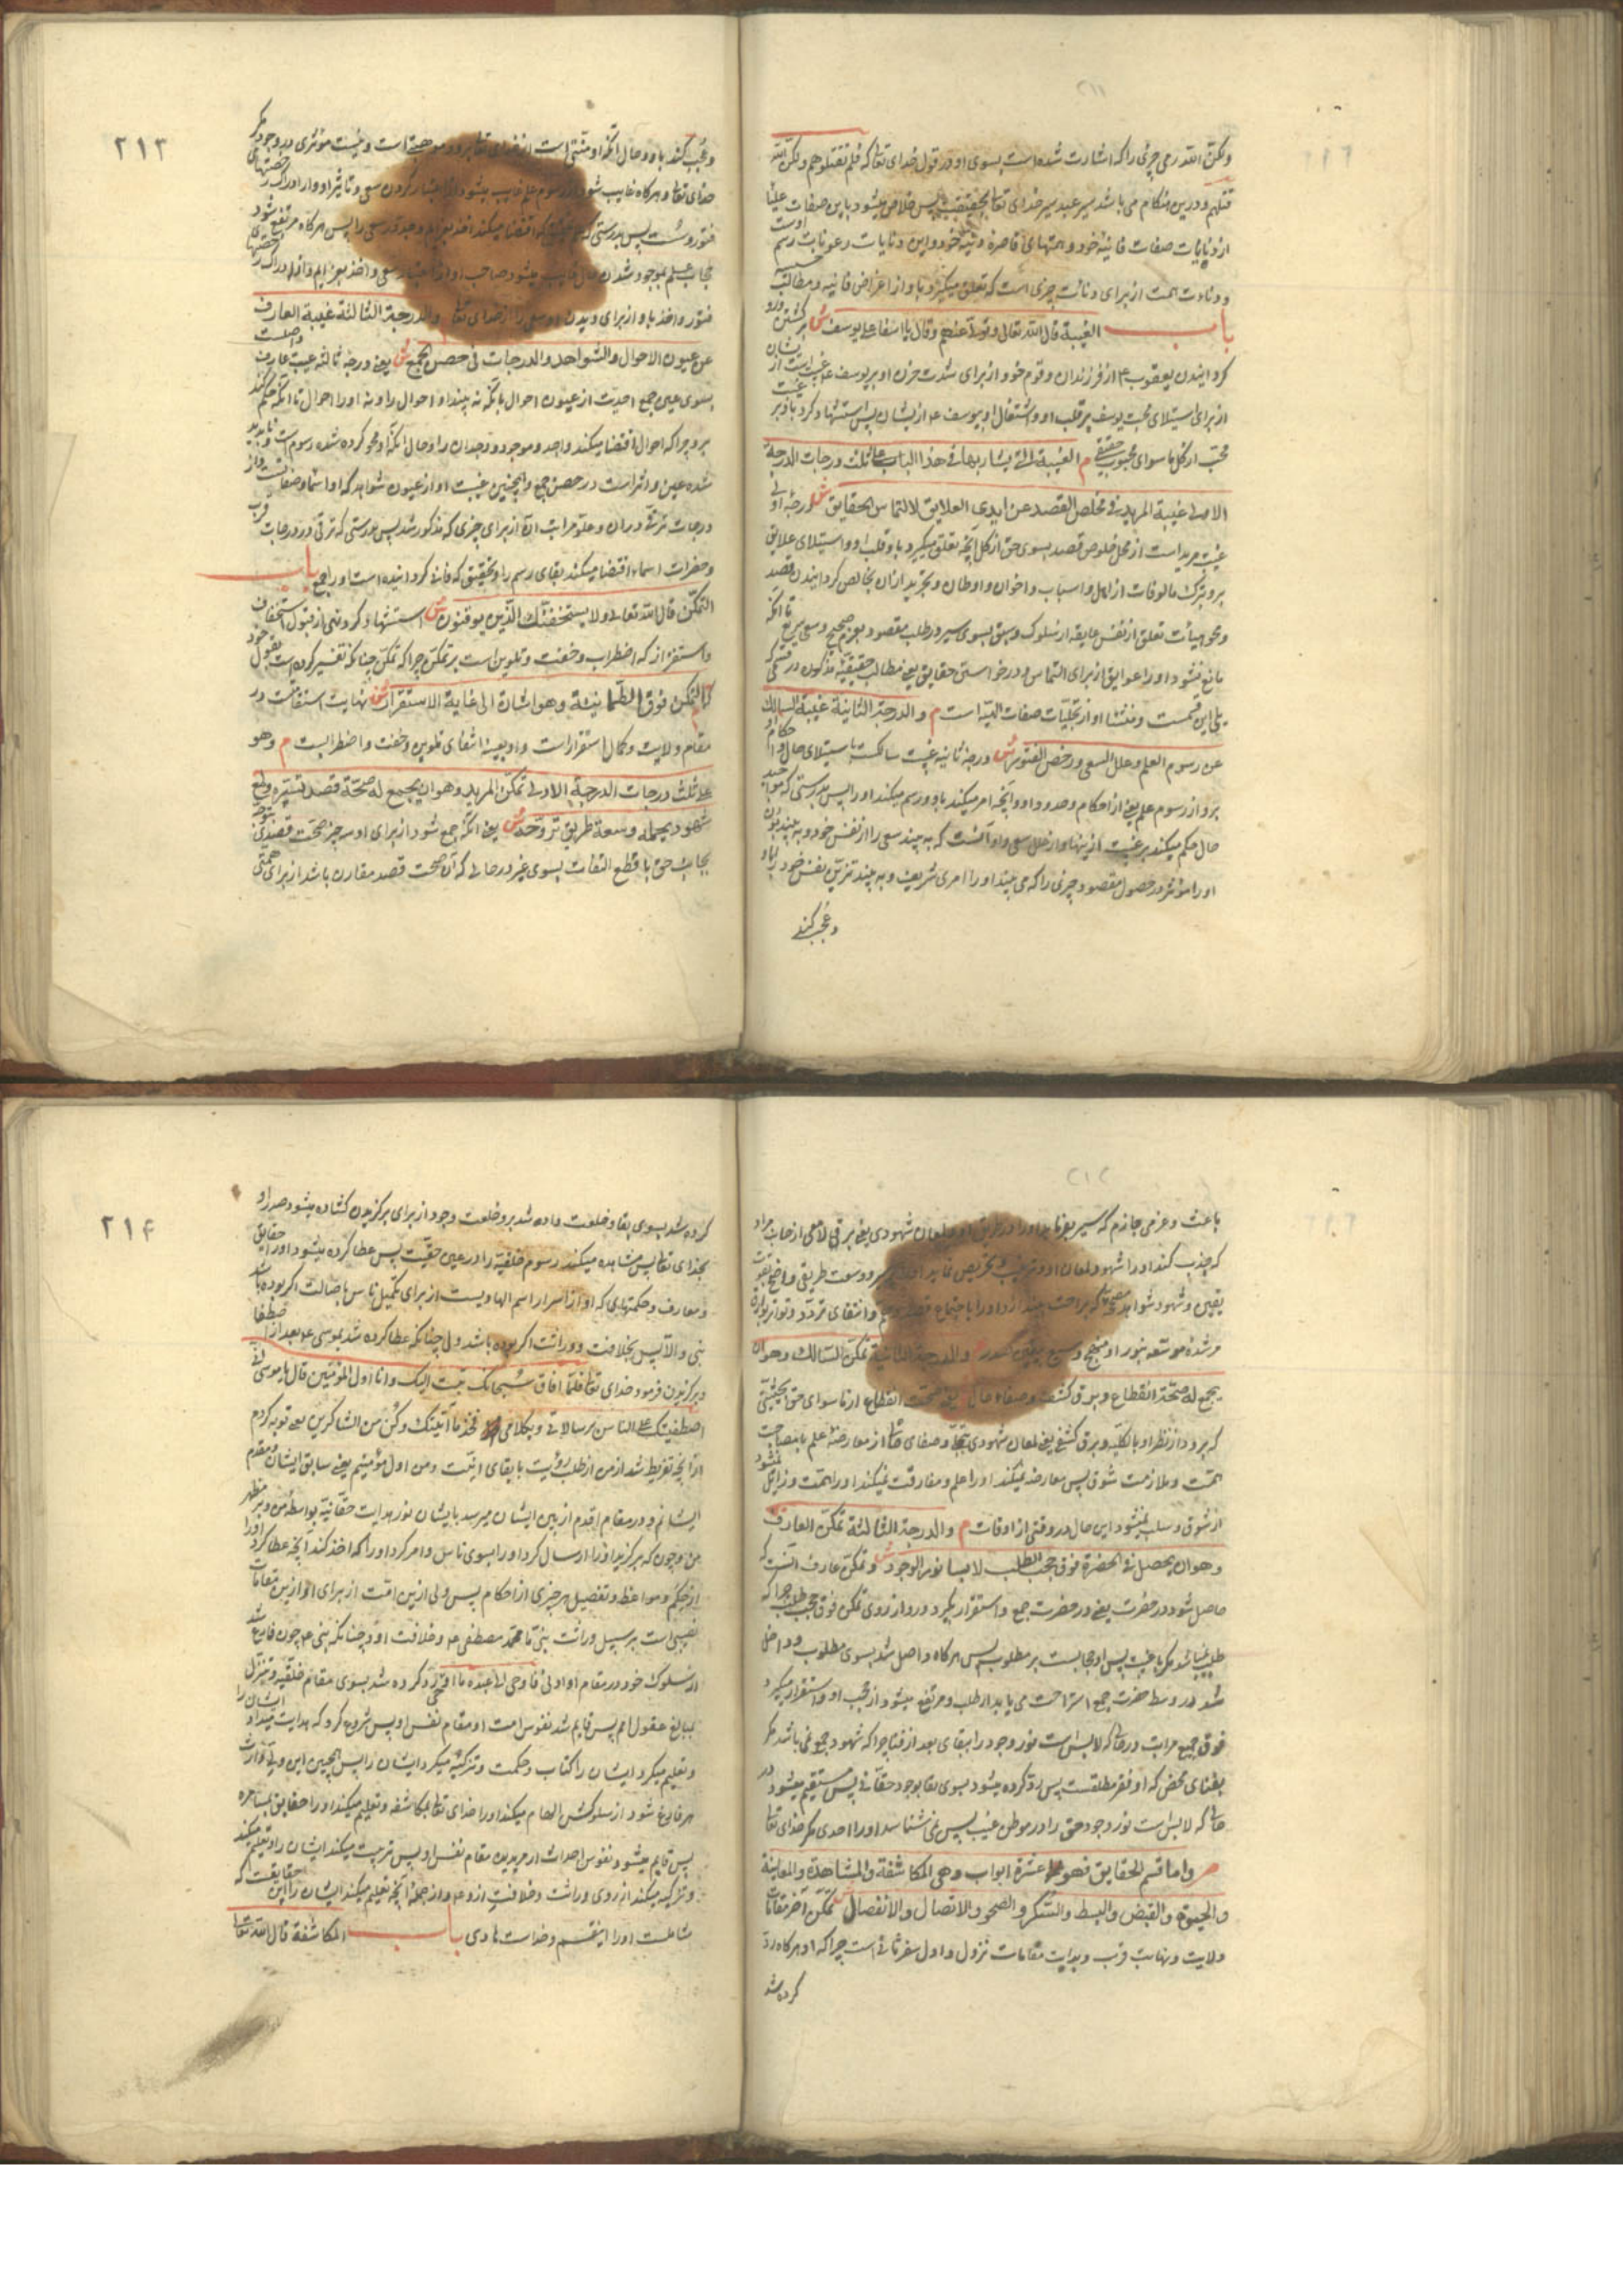 ولکن الله رمی چیزی را که اشارت شده است بسوی او در قول خدای تعالی که فلم تقتلوهم ولکن الله
قتلهم و درین هنگام می باشد سیر عبد سیر خدای تعالی بحقیقت پس خلاص میشود باین صفات علیا
از صفات فانیه خود و همتهای قاصره دنیه خود و این دنایات رعونات رسم اوست
و دنائت همت از برای دنائت چیزی است که تعلق میگیرد باو از اغراض فانیه و مطالب خسیسه
باب الغیبة قال الله تعالی وتولی عنهم وقال یا اسفا علی یوسف ش برگشتن و رو
گردانیدن یعقوب ع از فرزندان و قوم خود از برای شدت حزن او بر یوسف ع غیبت است از ایشان
از برای استیلای محبت یوسف بر قلب او و اشتغال او بیوسف ع از ایشان پس استشهاد کرد باو بر غیبت
محب از کل ما سوای محبوب حقیقی م الغیبة التی یشار بها فی هذا الباب علی ثلث درجات الدرجة
الاولی غیبة المرید فی مخلص القصد عن ایدی العلایق لالتماس الحقایق ش درجه اولی
غیبت مرید است از محل خلوص قصد بسوی حق از کل آنچه تعلق میگیرد باو قلب او و استیلای علایق
برو بترک مالوفات از اهل و اسباب و اخوان و اوطان و تجرید از آن بخالص گردانیدن قصد
و محو هیأت تعلق از نفس عایقه از سلوک و سبق بسوی سیر در طلب مقصود بعزم صحیح و سعی سریع تا آنکه
مانع نشود او را عوایق از برای التماس و درخواستن حقایق یعنی مطالب حقیقیه مذکوره در قسمی که
یلی این قسمت و منشأ او از تجلیات صفات الهیه است م والدرجة الثانیة غیبة السالک
عن رسوم العلم وعلل السعی ورخص الفتور ش درجه ثانیه غیبت سالکست باستیلای حال و احکام او
برو از رسوم علم یعنی از احکام و حدود او و آنچه امر میکند باو و رسم میکند او را پس بدرستی که مواجید
حال حکم میکند بر غیبت ازینها و از علل سعی و او آنست که به بیند سعی را از نفس خود و به بیند
او را مؤثر در حصول مقصود و چیزی را که می بیند او را امری شریف و به بیند تزین نفس خود را باو
و عجب کند
٢١٣
و عجب کند باو و حال آنکه او منتی است از خدای تعالی برو و موهبتی است و نیست مؤثری در وجود مگر
خدای تعالی و هرگاه غایب شود از رسوم علم غایب میشود از اعتبار کردن سعی و تاثیر او و از ادراک رخصتهای
فتور و سست پس بدرستی که اقتضا میکند اخذ بعزایم و جد در سعی را پس هرگاه مرتفع شود
حجاب علم بموجود شدن حال غایب میشود صاحب او از اعتبار سعی و اخذ بعزایم و از ادراک رخصتهای
فتور و اخذ باو از برای دیدن او سعی را از خدای تعالی م والدرجة الثالثة غیبة العارف
عن عیون الاحوال والشواهد والدرجات فی حصن الجمع ش یعنی درجه ثالثه غیبت عارف واصلست
بسوی عین جمع احدیت از عیون احوال بآنکه نه بیند او احوال را و نه او را احوال تا آنکه حکم کند
برو چرا که احوال اقتضا میکند واجد و موجود و وجدان را و حال آنکه او محو کرده شده رسوم است و ناپدید
شده عین و اثر است در حصن جمع و همچنین غیبت او از عیون شواهد که او اسما و صفاتست و از
درجات ترقی در آن و علو مراتب آن از برای چیزی که مذکور شد پس بدرستی که ترقی در درجات قرب
و حضرات اسماء اقتضا میکند بقای رسم را و بتحقیق که فانی گردانیده است او را جمع باب
التمکن قال الله تعالی ولا یستخفنک الذین لا یوقنون ش استشهاد کرد بنهی از قبول استخفاف
و استفزاز که اضطراب و خفت و تلوین است بر تمکن چرا که تمکن چنانکه تفسیر کرده است بقول خود
که التمکن فوق الطمانینة وهو اشارة الی غایة الاستقرار ش نهایت استقامت در
مقام ولایت و کمال استقرار است و او بعینه انتفای تلوین و خفت و اضطرابست م وهو
علی ثلث درجات الدرجة الاولی تمکن المرید وهو ان یجمع له صحة قصد تسیره ولمع
شهود یحمله وسعة طریق تروحه ش یعنی آنکه جمع شود از برای او سه چیز صحت قصدی
بجانب حق با قطع التفات بسوی غیر در حالی که آن صحت قصد مقارن باشد از برای همتی
باعث و عزمی جازم که سیر بفرماید او را در طریق او و لمعان شهودی یعنی برقی لامعی از جناب مراد
که جذب کند او را شهود لمعان او و ترغیب و تحریص نماید او را بر سیر و وسعت طریقی واضح بقوت
یقین و شهود شواهد که براحت بیندازد او را باجتماع قصد و انتفای تردد
مر شده متوسعه بنور او منهج وسیع یعنی گشاده م والدرجة الثانیة تمکن السالک وهو ان
یجمع له صحة انقطاع وبرق کشف وصفاء حال ش یعنی صحت انقطاع از ما سوای حق بحیثیتی
که برود از نظر او بالکلیه و برق کشفی یعنی لمعان شهودی و صفای حالی از معارضه علم بامصاحبت
همت و ملازمت شوق پس معارضه نمیکند او را علم و مفارقت نمیکند او را همت و زایل نمیشود
از شوق و سلب نمیشود این حال در وقتی از اوقات م والدرجة الثالثة تمکن العارف
وهو ان یحصل فی الحضرة فوق حجب الطلب لابسا نور الوجود ش و تمکن عارف آنست که
حاصل شود در حضرت یعنی در حضرت جمع و استقرار بگیرد درو از روی تمکن فوق حجب طلب چرا که
طلب نمیباشد مگر با غیبت پس او حجابست بر مطلوب پس هرگاه واصل شد بسوی مطلوب و داخل
شد در وسط حضرت جمع استراحت می یابد از طلب و مرتفع میشود از حجب او و استقرار میگیرد
فوق جمیع مراتب در حالی که لابس است نور وجود را ببقای بعد از فنا چرا که شهود جمع نمی باشد مگر
بفنای محض که او فقر مطلقست پس رد کرده میشود بسوی بقا بوجود حقانی پس مستقیم میشود در
حالی که لابس است نور وجود حق را در موطن غیب پس نمی شناسد او را احدی مگر خدای تعالی
م واما قسم الحقایق فهو عشرة ابواب وهی المکاشفة والمشاهدة والمعاینة
والحیوة والقبض والبسط والسکر والصحو والاتصال والانفصال ش تمکن آخر مقامات
ولایت و نهایت قرب و بدایت مقامات نزول و اول سفر ثانی است چرا که او هرگاه رد
کرده شد
٢١۴
کرده شد بسوی بقا و خلعت داده شد برو خلعت وجود از برای برگزیدن گشاده میشود صدر او
بخدای تعالی پس مشاهده میکند رسوم خلقیه را در عین حقیت پس عطا کرده میشود او را حقایق
و معارف و حکمتهای که او از اسرار اسم الهادیست از برای تکمیل ناس باصالت اگر بوده باشد
نبی والا پس بخلافت و وراثت اگر بوده باشد ولی چنانکه عطا کرده شد بموسی ع بعد از اصطفا
و برگزیدن فرمود خدای تعالی فلما افاق قال سبحانک تبت الیک وانا اول المؤمنین قال یا موسی انی
اصطفیتک علی الناس برسالاتی وبکلامی فخذ ما آتیتک وکن من الشاکرین یعنی توبه کردم
از آنچه تفریط شد از من از طلب رؤیت با بقای انیت و من اول مؤمنینم یعنی سابق ایشان و مقدم
ایشانم و در مقام اقدم ازین ایشان میرسد بایشان نور هدایت حقانیه بواسطه من
من و چون که برگزید او را ارسال کرد او را بسوی ناس و امر کرد او را که اخذ کند آنچه عطا کرد او را
از حکم و مواعظ و تفصیل هر چیزی از احکام پس ولی ازین امت از برای او ازین مقامات
نصیبی است بر سبیل وراثت نبی ما محمد مصطفی ع و خلافت او و چنانکه نبی ع چون فارغ شد
از سلوک خود در مقام او ادنی فاوحی الی عبده ما اوحی رد کرده شد بسوی مقام خلقیه و تنزل
بمبالغ عقول امم پس قایم شد نفوس امت او مقام نفس او پس شروع کرد که هدایت میداد ایشان را
و تعلیم میکرد ایشان را کتاب و حکمت و تزکیه میکرد ایشان را پس همچنین این ولی وارث
هر فارغ شود از سلوکش الهام میکند او را خدای تعالی بمکاشفه و تعلیم میکند او را حقایق بمشاهده
پس قایم میشود نفوس احداث از مریدین مقام نفس او پس تربیت میکند ایشان را و تعلیم میکند
و تزکیه میکند از روی وراثت و خلافت ازو ع و از جمله آنچه تعلیم میکند ایشان را این حقایقست که
شاملست او را این قسم و خداست هادی باب المکاشفة قال الله تعالی